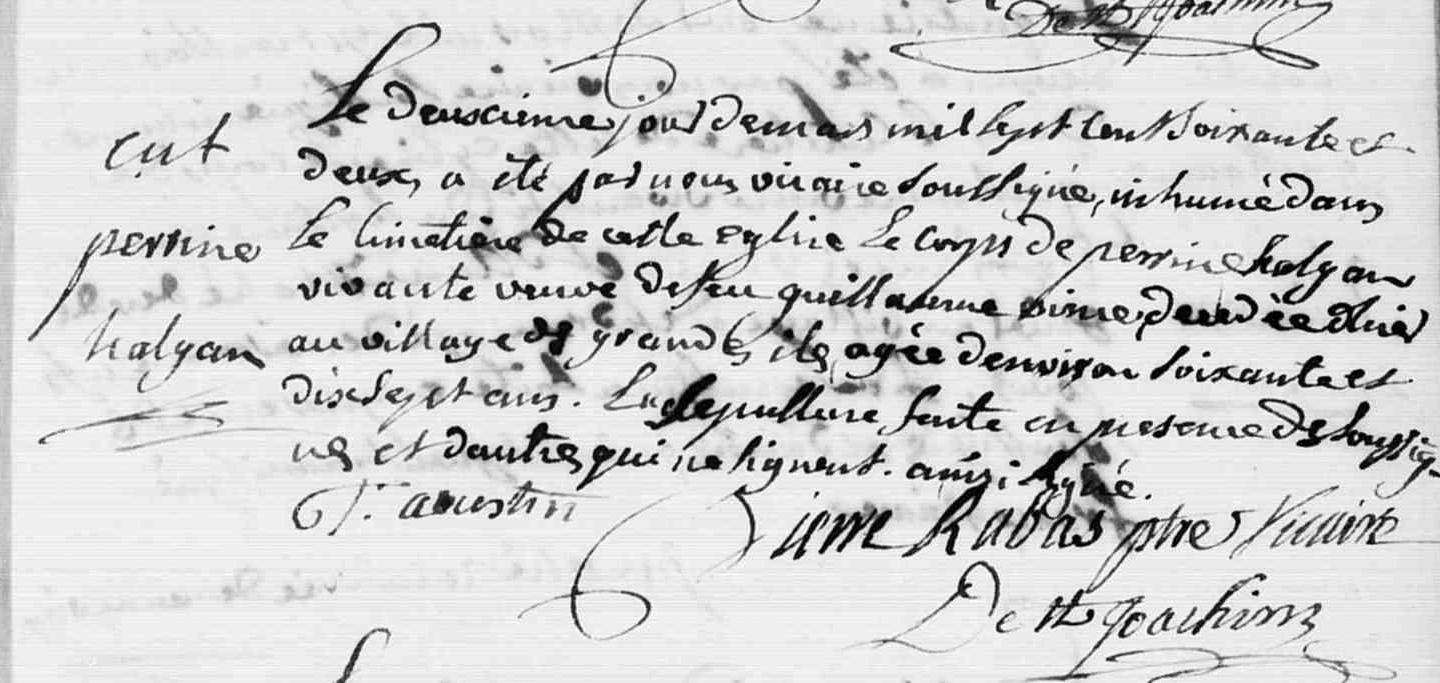 De St Joachim
Le deuxieme jour de mars mil sept cent Soixante et
deux, a été par nous vicaire Soussigné, inhumé dans
Le Cimetiére de cette eglise Le corps de perrine halgan
vivante veuve de feu guillaume decedée d'hier
au village des grandes iles, agée d'environ Soixante et
dix Sept ans. La Sepulture faite en presence des Soussig-
nés et d'autres qui ne signent. ainsi Signé.
aoustin
Pierre Rabas ptre Vicaire
De St Joachim
perrine
halgan